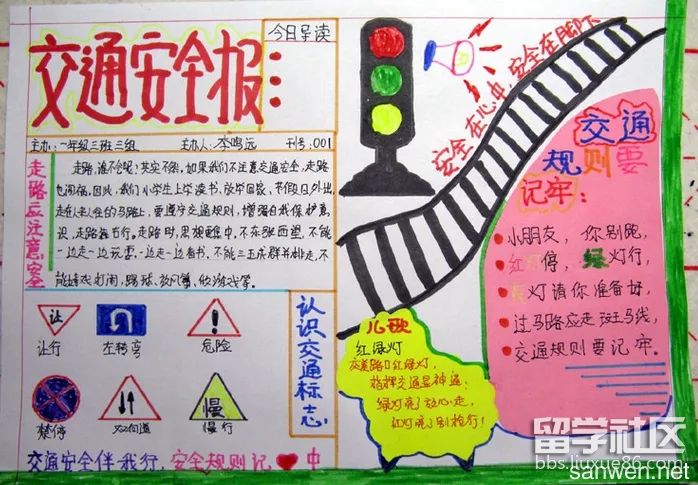 交通安全报
今日导读
主办：一年级三班三组 主办人：李鸣远 刊号：001
走路应注意安全
走路，谁不会呢？其实不然，如果我们不注意交通安全，走路
也闯祸。因此，我们小学生上学读书、放学回家、节假日外出，
走在人来人往的马路上，要遵守交通规则，增强自我保护意
识，走路靠右行。走路时，思想要集中，不东张西望，不能
一边走一边玩耍，一边走一边看书，不能三五成群并排走，不
能嬉戏打闹，踢球、放风筝，做游戏等。
让
让行
左转弯
危险
禁停
双向道
慢
慢行
认识交通标志
交通安全伴我行，安全规则记 中
安全在心中，安全在脚下
儿歌
红绿灯
交道路口红绿灯，
指挥交通显神通；
绿灯亮了放心走，
红灯亮了别抢行！
交通
规则要
记牢：
小朋友，你别跑，
红灯停，绿灯行，
黄灯请你准备好，
过马路应走斑马线，
交通规则要记牢。
留学社区
bbs.liuxue86.com
sanwen.net